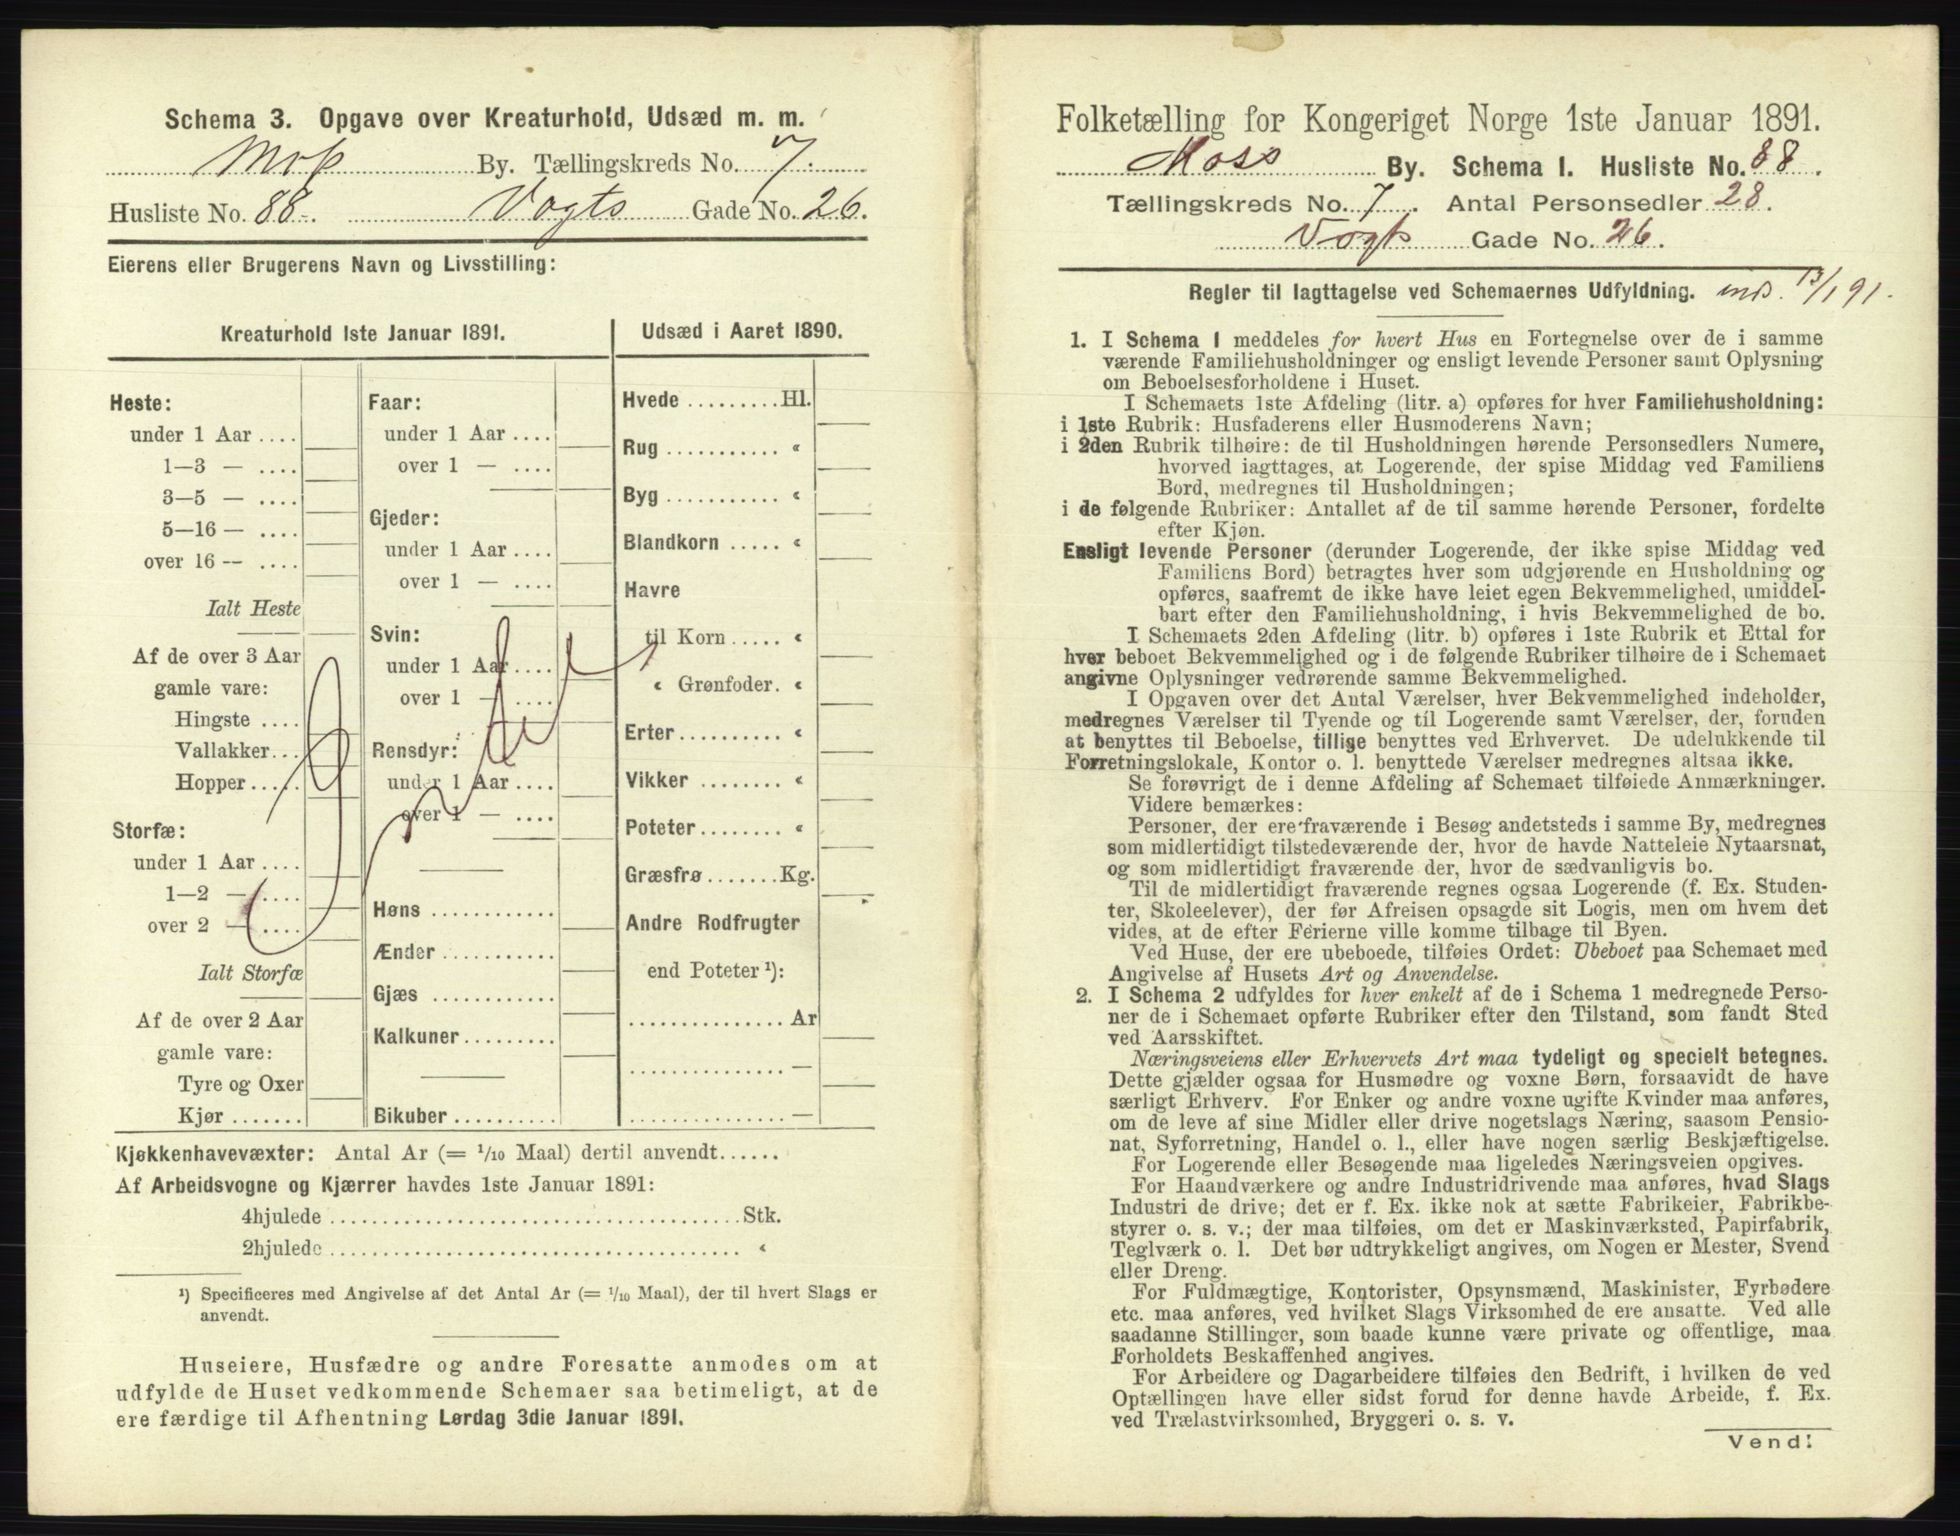 Schema 3. Opgave over Kreaturhold, Udsæd m. m.
Moss By. Tællingskreds No. 7.
Husliste No. 88. Vogts Gade No. 26.
Eierens eller Brugerens Navn og Livsstilling:
Kreaturhold 1ste Januar 1891.
Heste:
under 1 Aar ....
1—3 — ....
3—5 — ....
5—16 — ....
over 16 — ....
Ialt Heste
Af de over 3 Aar
gamle vare:
Hingste ....
Vallakker...
Hopper.....
Storfæ:
under 1 Aar ....
1—2 — ....
over 2 — ....
Ialt Storfæ
Af de over 2 Aar
gamle vare:
Tyre og Oxer
Kjør ........
Faar:
under 1 Aar ....
over 1 — ....
Gjeder:
under 1 Aar ....
over 1 — ....
Svin:
under 1 Aar ....
over 1 — ....
Rensdyr:
under 1 Aar ....
over 1 — ....
Høns ............
Ænder ...........
Gjæs ............
Kalkuner.........
Bikuber ..........
Udsæd i Aaret 1890.
Hvede .........Hl.
Rug ........... «
Byg ........... «
Blandkorn ..... «
Havre
til Korn ..... «
« Grønfoder. «
Erter.......... «
Vikker ........ «
Poteter........ «
Græsfrø.......Kg.
Andre Rodfrugter
end Poteter ¹):
............... Ar
............... —
............... —
Kjøkkenhavevæxter: Antal Ar (= 1/10 Maal) dertil anvendt......
Af Arbeidsvogne og Kjærrer havdes 1ste Januar 1891:
4hjulede ........................................Stk.
2hjulede ........................................ «
¹) Specificeres med Angivelse af det Antal Ar (= 1/10 Maal), der til hvert Slags er
anvendt.
Huseiere, Husfædre og andre Foresatte anmodes om at
udfylde de Huset vedkommende Schemaer saa betimeligt, at de
ere færdige til Afhentning Lørdag 3die Januar 1891.
Folketælling for Kongeriget Norge 1ste Januar 1891.
Moss By. Schema 1. Husliste No. 88.
Tællingskreds No. 7. Antal Personsedler 28.
Vogts Gade No. 26.
Regler til Iagttagelse ved Schemaernes Udfyldning. inds. 13/1 91.
1. I Schema 1 meddeles for hvert Hus en Fortegnelse over de i samme
værende Familiehusholdninger og ensligt levende Personer samt Oplysning
om Beboelsesforholdene i Huset.
I Schemaets 1ste Afdeling (litr. a) opføres for hver Familiehusholdning:
i 1ste Rubrik: Husfaderens eller Husmoderens Navn;
i 2den Rubrik tilhøire: de til Husholdningen hørende Personsedlers Numere,
hvorved iagttages, at Logerende, der spise Middag ved Familiens
Bord, medregnes til Husholdningen;
i de følgende Rubriker: Antallet af de til samme hørende Personer, fordelte
efter Kjøn.
Ensligt levende Personer (derunder Logerende, der ikke spise Middag ved
Familiens Bord) betragtes hver som udgjørende en Husholdning og
opføres, saafremt de ikke have leiet egen Bekvemmelighed, umiddel-
bart efter den Familiehusholdning, i hvis Bekvemmelighed de bo.
I Schemaets 2den Afdeling (litr. b) opføres i 1ste Rubrik et Ettal for
hver beboet Bekvemmelighed og i de følgende Rubriker tilhøire de i Schemaet
angivne Oplysninger vedrørende samme Bekvemmelighed.
I Opgaven over det Antal Værelser, hver Bekvemmelighed indeholder,
medregnes Værelser til Tyende og til Logerende samt Værelser, der, foruden
at benyttes til Beboelse, tillige benyttes ved Erhvervet. De udelukkende til
Forretningslokale, Kontor o. l. benyttede Værelser medregnes altsaa ikke.
Se forøvrigt de i denne Afdeling af Schemaet tilføiede Anmærkninger.
Videre bemærkes:
Personer, der ere fraværende i Besøg andetsteds i samme By, medregnes
som midlertidigt tilstedeværende der, hvor de havde Natteleie Nytaarsnat,
og som midlertidigt fraværende der, hvor de sædvanligvis bo.
Til de midlertidigt fraværende regnes ogsaa Logerende (f. Ex. Studen-
ter, Skoleelever), der før Afreisen opsagde sit Logis, men om hvem det
vides, at de efter Ferierne ville komme tilbage til Byen.
Ved Huse, der ere ubeboede, tilføies Ordet: Ubeboet paa Schemaet med
Angivelse af Husets Art og Anvendelse.
2. I Schema 2 udfyldes for hver enkelt af de i Schema 1 medregnede Perso-
ner de i Schemaet opførte Rubriker efter den Tilstand, som fandt Sted
ved Aarsskiftet.
Næringsveiens eller Erhvervets Art maa tydeligt og specielt betegnes.
Dette gjælder ogsaa for Husmødre og voxne Børn, forsaavidt de have
særligt Erhverv. For Enker og andre voxne ugifte Kvinder maa anføres,
om de leve af sine Midler eller drive nogetslags Næring, saasom Pensio-
nat, Syforretning, Handel o. l., eller have nogen særlig Beskjæftigelse.
For Logerende eller Besøgende maa ligeledes Næringsveien opgives.
For Haandværkere og andre Industridrivende maa anføres, hvad Slags
Industri de drive; det er f. Ex. ikke nok at sætte Fabrikeier, Fabrikbe-
styrer o. s. v.; der maa tilføies, om det er Maskinværksted, Papirfabrik,
Teglværk o. l. Det bør udtrykkeligt angives, om Nogen er Mester, Svend
eller Dreng.
For Fuldmægtige, Kontorister, Opsynsmænd, Maskinister, Fyrbødere
etc. maa anføres, ved hvilket Slags Virksomhed de ere ansatte. Ved alle
saadanne Stillinger, som baade kunne være private og offentlige, maa
Forholdets Beskaffenhed angives.
For Arbeidere og Dagarbeidere tilføies den Bedrift, i hvilken de ved
Optællingen have eller sidst forud for denne havde Arbeide, f. Ex.
ved Trælastvirksomhed, Bryggeri o. s. v.
Vend!